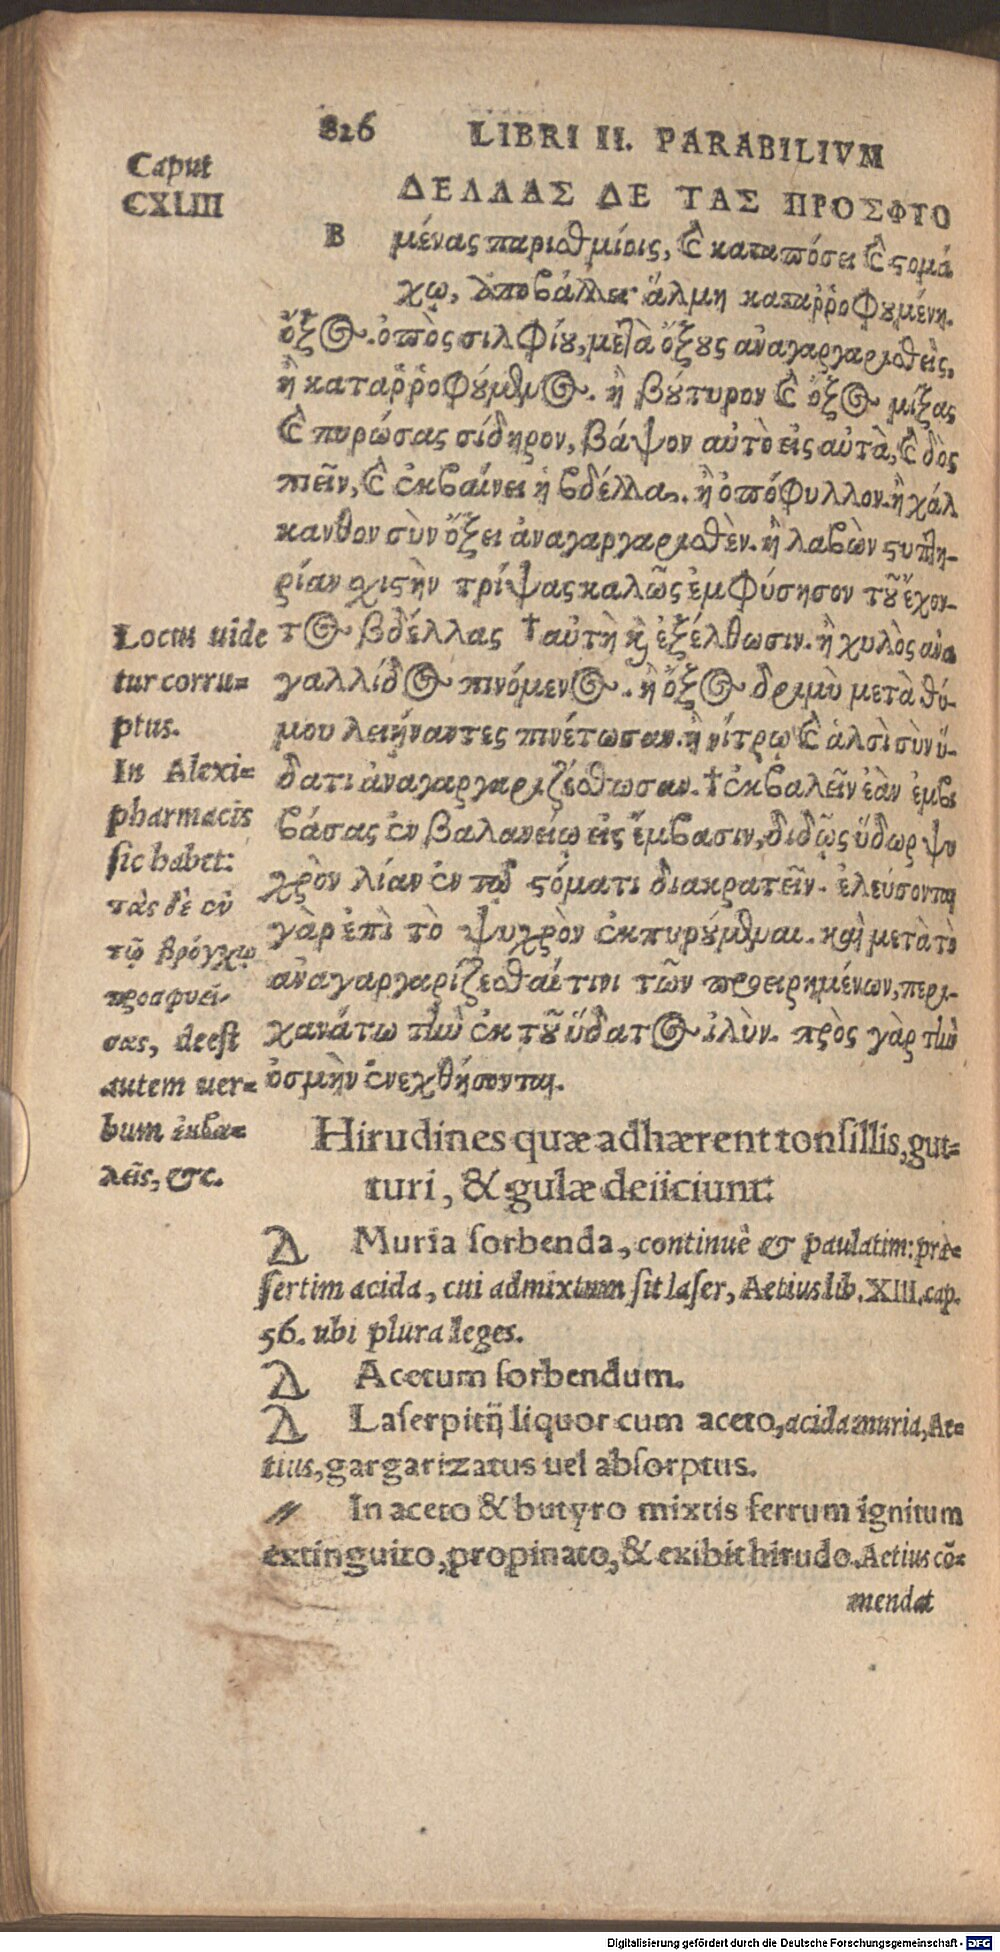 826 LIBRI II. PARABILIVM
Caput
CXLIII
ΔΕΛΛΑΣ ΔΕ ΤΑΣ ΠΡΟΣΦΥΟ
Β μένας παρισθμίοις, καὶ καταπόσει καὶ στομά
χῳ, ἀποβάλλει ἅλμη καταῤῥοφουμένη.
ὄξος. ὀπὸς σιλφίου, μετὰ ὄξους ἀναγαργαρισθεὶς,
ἢ καταῤῥοφούμενος. ἢ βούτυρον καὶ ὄξος μίξας
καὶ πυρώσας σίδηρον, βάψον αὐτὸ εἰς αὐτὰ, καὶ δὸς
πιεῖν, καὶ ἐκβαίνει ἡ βδέλλα. ἢ ὀπόφυλλον. ἢ χάλ
κανθον σὺν ὄξει ἀναγαργαρισθὲν. ἢ λαβὼν στυπτη-
ρίαν σχιστὴν τρίψας καλῶς ἐμφύσησον τοῦ ἔχον-
τος βδέλλας †αὐτὴ καὶ ἐξέλθωσιν. ἢ χυλὸς ἀνα
γαλλίδος πινόμενος. ἢ ὄξος δριμὺ μετὰ θύ-
μου λειήναντες πινέτωσαν. ἢ νίτρῳ καὶ ἁλσὶ σὺν ὕ-
δατι ἀναγαργαριζέσθωσαν. †ἐκβαλεῖν ἐὰν ἐμβι
βάσας ἐν βαλανείῳ εἰς ἔμβασιν, διδῷς ὕδωρ ψυ
χρὸν λίαν ἐν τῷ στόματι διακρατεῖν. ἐλεύσονται
γὰρ ἐπὶ τὸ ψυχρὸν ἐκπυρούμεναι. καὶ μετὰ τὸ
ἀναγαργαρίζεσθαί τινι τῶν προειρημένων, περι-
χανάτω τὴν ἐκ τοῦ ὕδατος ἰλὺν. πρὸς γὰρ τὴν
ὀσμὴν ἐνεχθήσονται.
Locus uide
tur corru=
ptus.
In Alexi=
pharmacis
sic habet:
τὰς δὲ ἐν
τῷ βρόγχῳ
προσφυεί-
σας, deest
autem uer=
bum ἐκβα=
λεῖς, &c.
Hirudines quæ adhærent tonsillis, gut=
turi, & gulæ deiiciunt:
Δ Muria sorbenda, continuè & paulatim: præ=
sertim acida, cui admixtum sit laser, Aetius lib. XIII. cap.
56. ubi plura leges.
Δ Acetum sorbendum.
Δ Laserpitij liquor cum aceto, acida muria, Ae=
tius, gargarizatus uel absorptus.
〃 In aceto & butyro mixtis ferrum ignitum
extinguito, propinato, & exibit hirudo. Aetius cō=
mendat
Digitalisierung gefördert durch die Deutsche Forschungsgemeinschaft - DFG